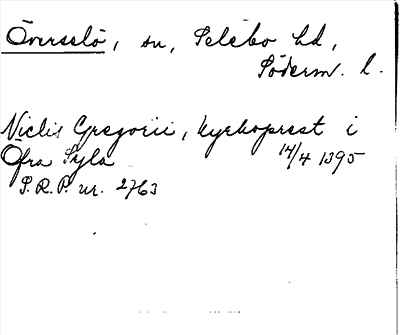 Överselö, sn, Selebo hd,
Söderm. l.
Niclis Gregorii, kyrkoprest i
Öfra Syla 14/4 1395
S.R.P. nr. 2763